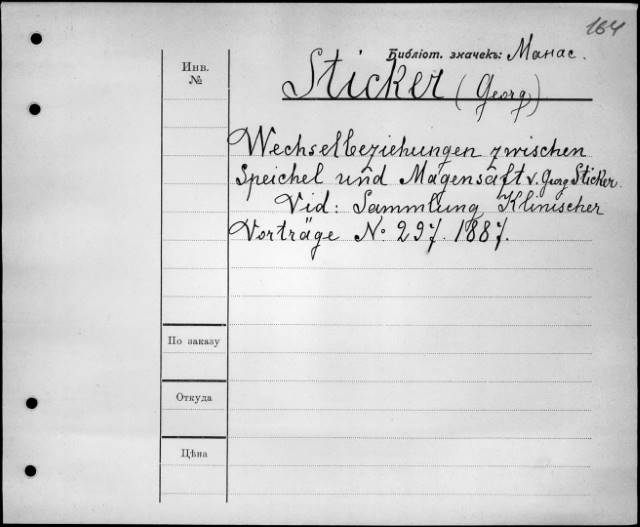 164
Библіот. значекъ: Манас.
Инв.
№
Sticker (Georg)
Wechselbeziehungen zwischen
Speichel und Magensaft v. Georg Sticker.
Vid: Sammlung Klinischer
Vorträge No. 297. 1887.
По заказу
Откуда
Цѣна